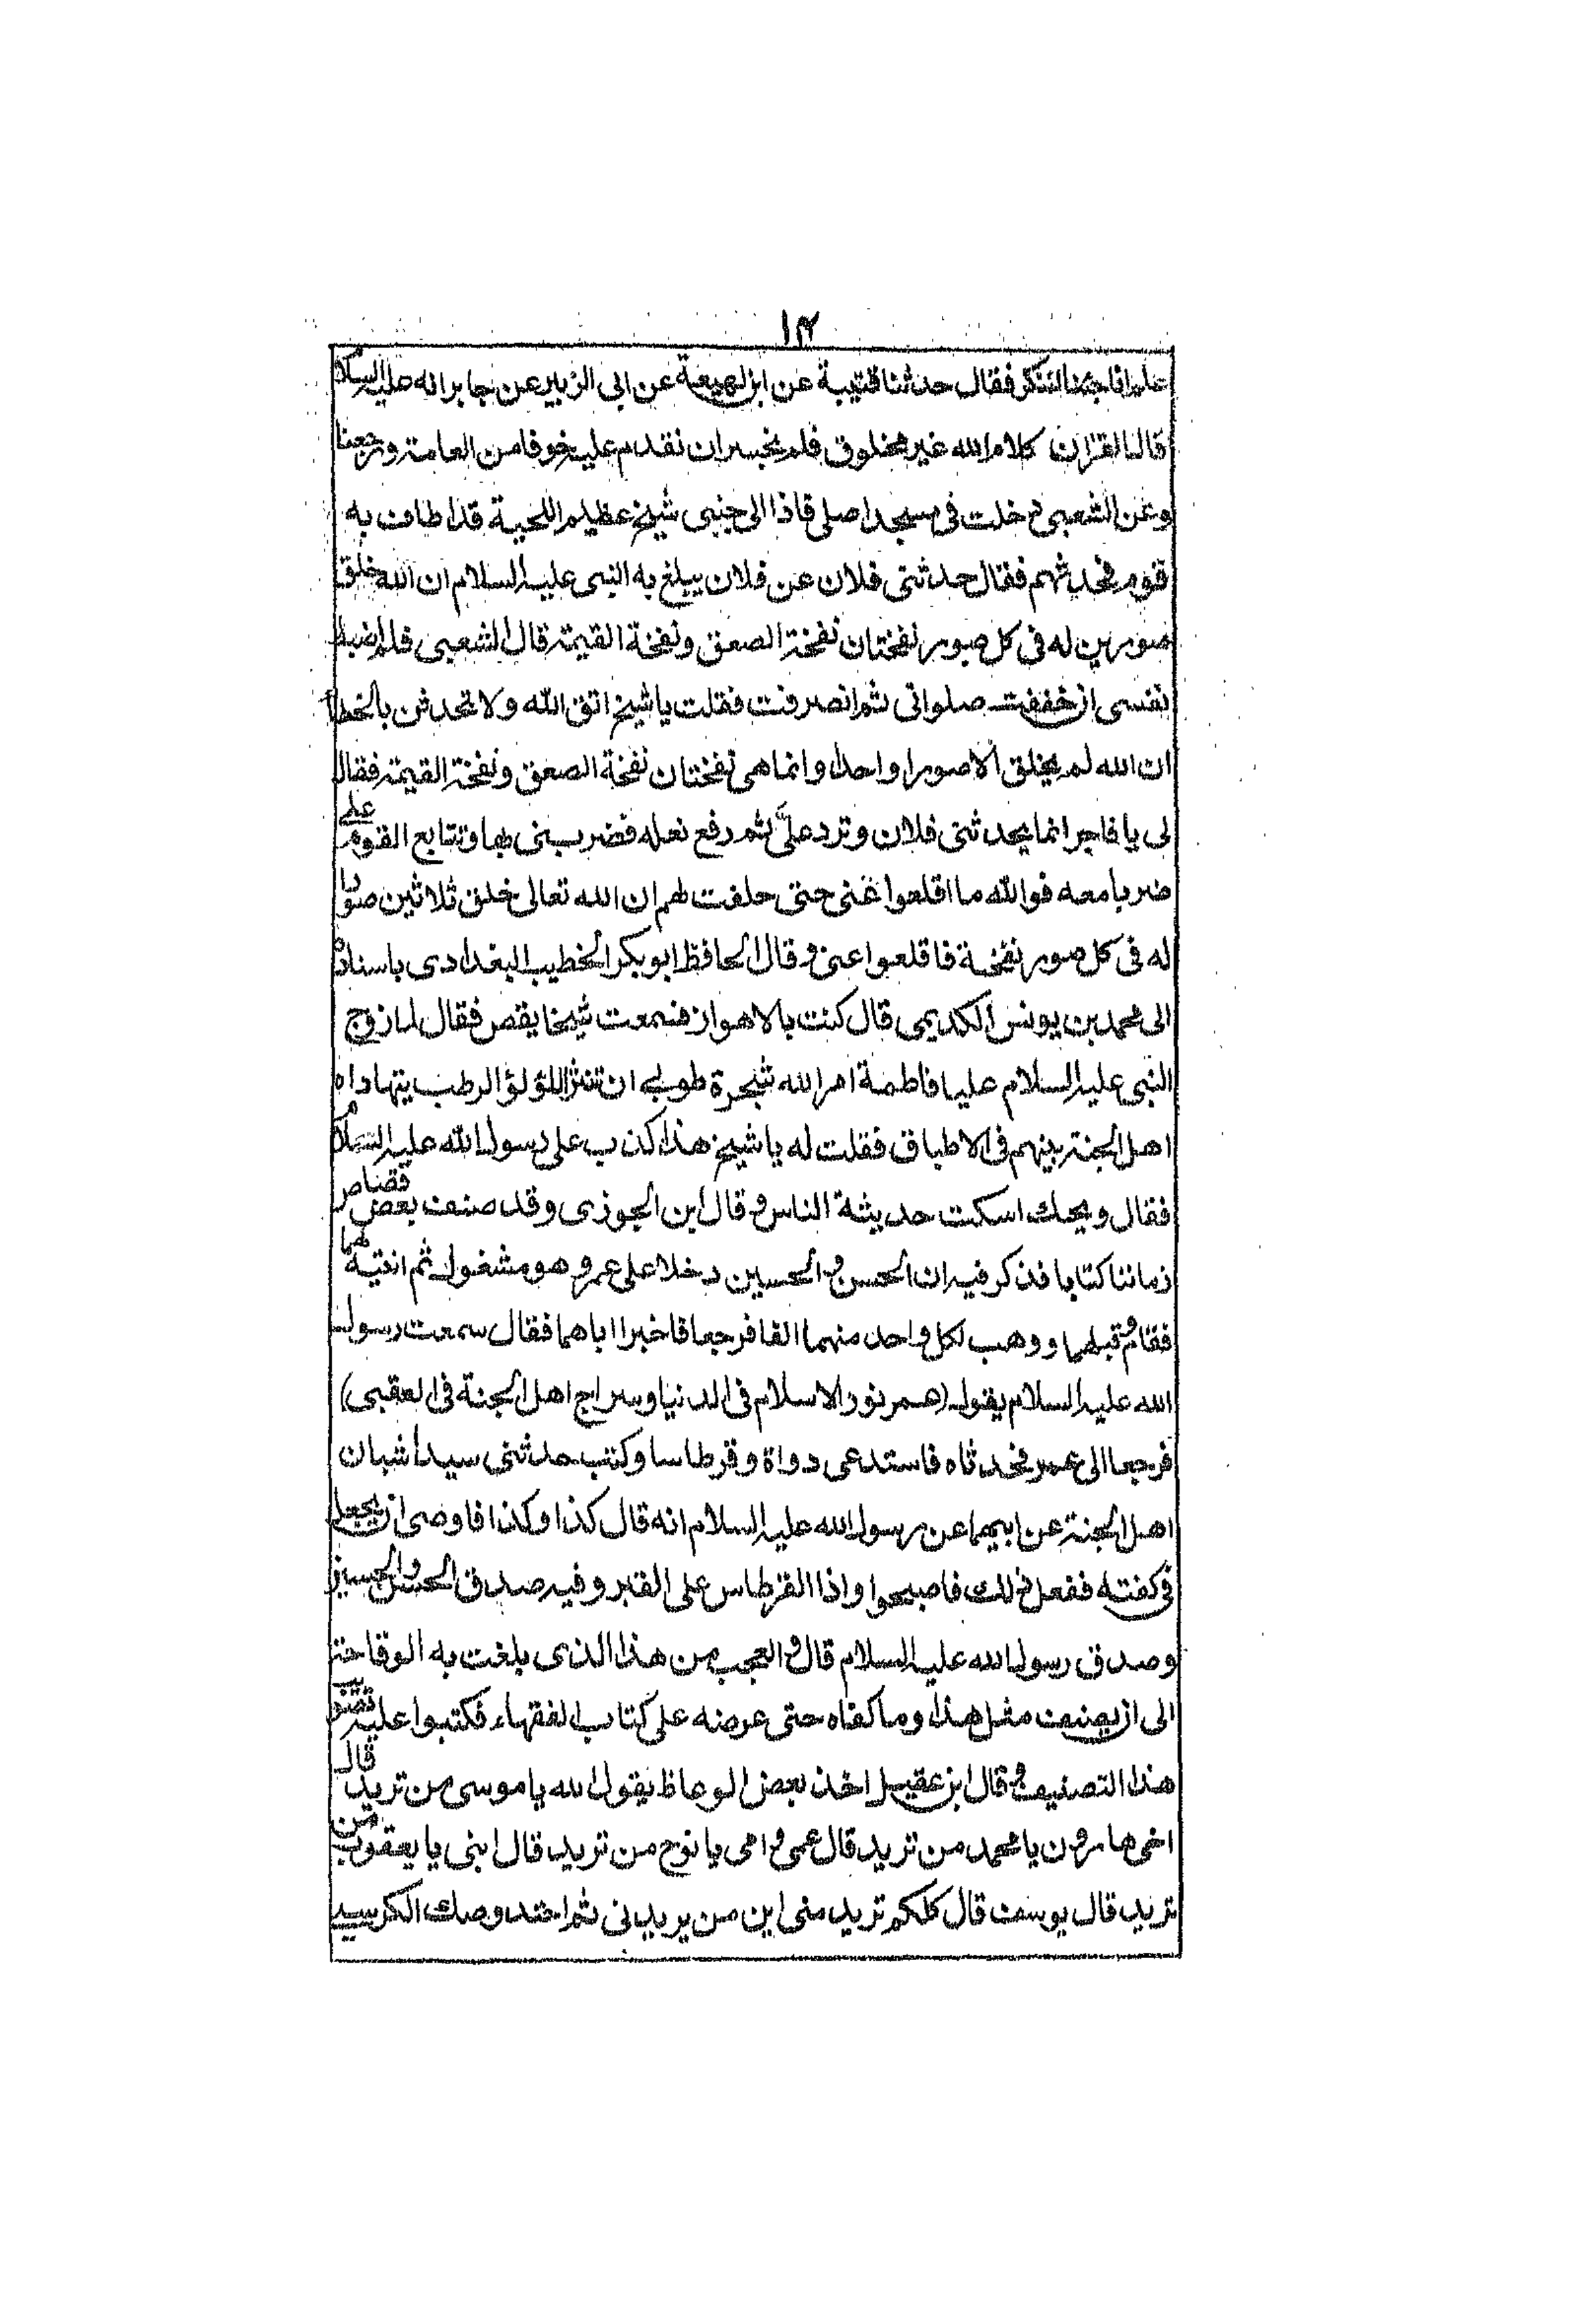 ١٢
علم انا جئنا لننكر فقال حدثنا قتيبة عن ابن لهيعة عن ابى الزبير عن جابر انه عليه السلام
قال القران كلام الله غير مخلوق فلم يجسر ان نقدم عليه خوفا من العامة ورجعنا
وعن الشعبى دخلت فى مسجد اصلى فاذا الى جنبى شيخ عظيم اللحية قد اطاف به
قوم فحدثهم فقال حدثنى فلان عن فلان يبلغ به النبى عليه السلام ان الله خلق
صورين له فى كل صور نفختان نفخة الصعق ونفخة القيمة قال الشعبى فلم اضبط
نفسى ان خففت صلواتى ثم انصرفت فقلت يا شيخ اتق الله ولا تحدثن بالخطا
ان الله لم يخلق الا صورا واحدا وانما هى نفختان نفخة الصعق ونفخة القيمة فقال
لى يا فاجر انما يحدثنى فلان وترد علىّ ثم رفع نعله فضربنى بها وتتابع القوم على
ضربا معه فوالله ما اقلعوا عنى حتى حلفت لهم ان الله تعالى خلق ثلاثين صورا
له فى كل صور نفخة فاقلعوا عنى وقال الحافظ ابو بكر الخطيب البغدادى باسناده
الى محمد بن يونس الكديمى قال كنت بالاهواز فسمعت شيخا يقص فقال لما زوج
النبى عليه السلام عليا فاطمة امر الله شجرة طوبى ان تنثر اللؤلؤ الرطب يتهاداه
اهل الجنة بينهم فى الاطباق فقلت له يا شيخ هذا كذب على رسول الله عليه السلام
فقال ويحك اسكت حديثة الناس وقال ابن الجوزى وقد صنف بعض قصاص
زماننا كتابا فذكر فيه ان الحسن والحسين دخلا على عمر وهو مشغول ثم انتبه لهما
فقام وقبلهما ووهب لكل واحد منهما الفا فرجعا فاخبرا اباهما فقال سمعت رسول
الله عليه السلام يقول (عمر نور الاسلام فى الدنيا وسراج اهل الجنة فى العقبى)
فرجعا الى عمر فحدثاه فاستدعى دواة وقرطاسا وكتب حدثنى سيدا شبان
اهل الجنة عن ابيهما عن رسول الله عليه السلام انه قال كذا وكذا فاوصى ان يجعل
فى كفنه ففعل ذلك فاصبحوا واذا القرطاس على القبر وفيه صدق الحسن والحسين
وصدق رسول الله عليه السلام قال والعجب من هذا الذى بلغت به الوقاحة
الى ان يصنف مثل هذا وما كفاه حتى عرضه على كتاب الفقهاء فكتبوا عليه تصويب
هذا التصنيف وقال ابن عقيل اخذ بعض الوعاظ يقول الله يا موسى من تريد قال
اخى هارون يا محمد من تريد قال عمى وامى يا نوح من تريد قال ابنى يا يعقوب من
تريد قال يوسف قال كلكم تريد منى اين من يريدنى ثم احتد وصك الكرسى